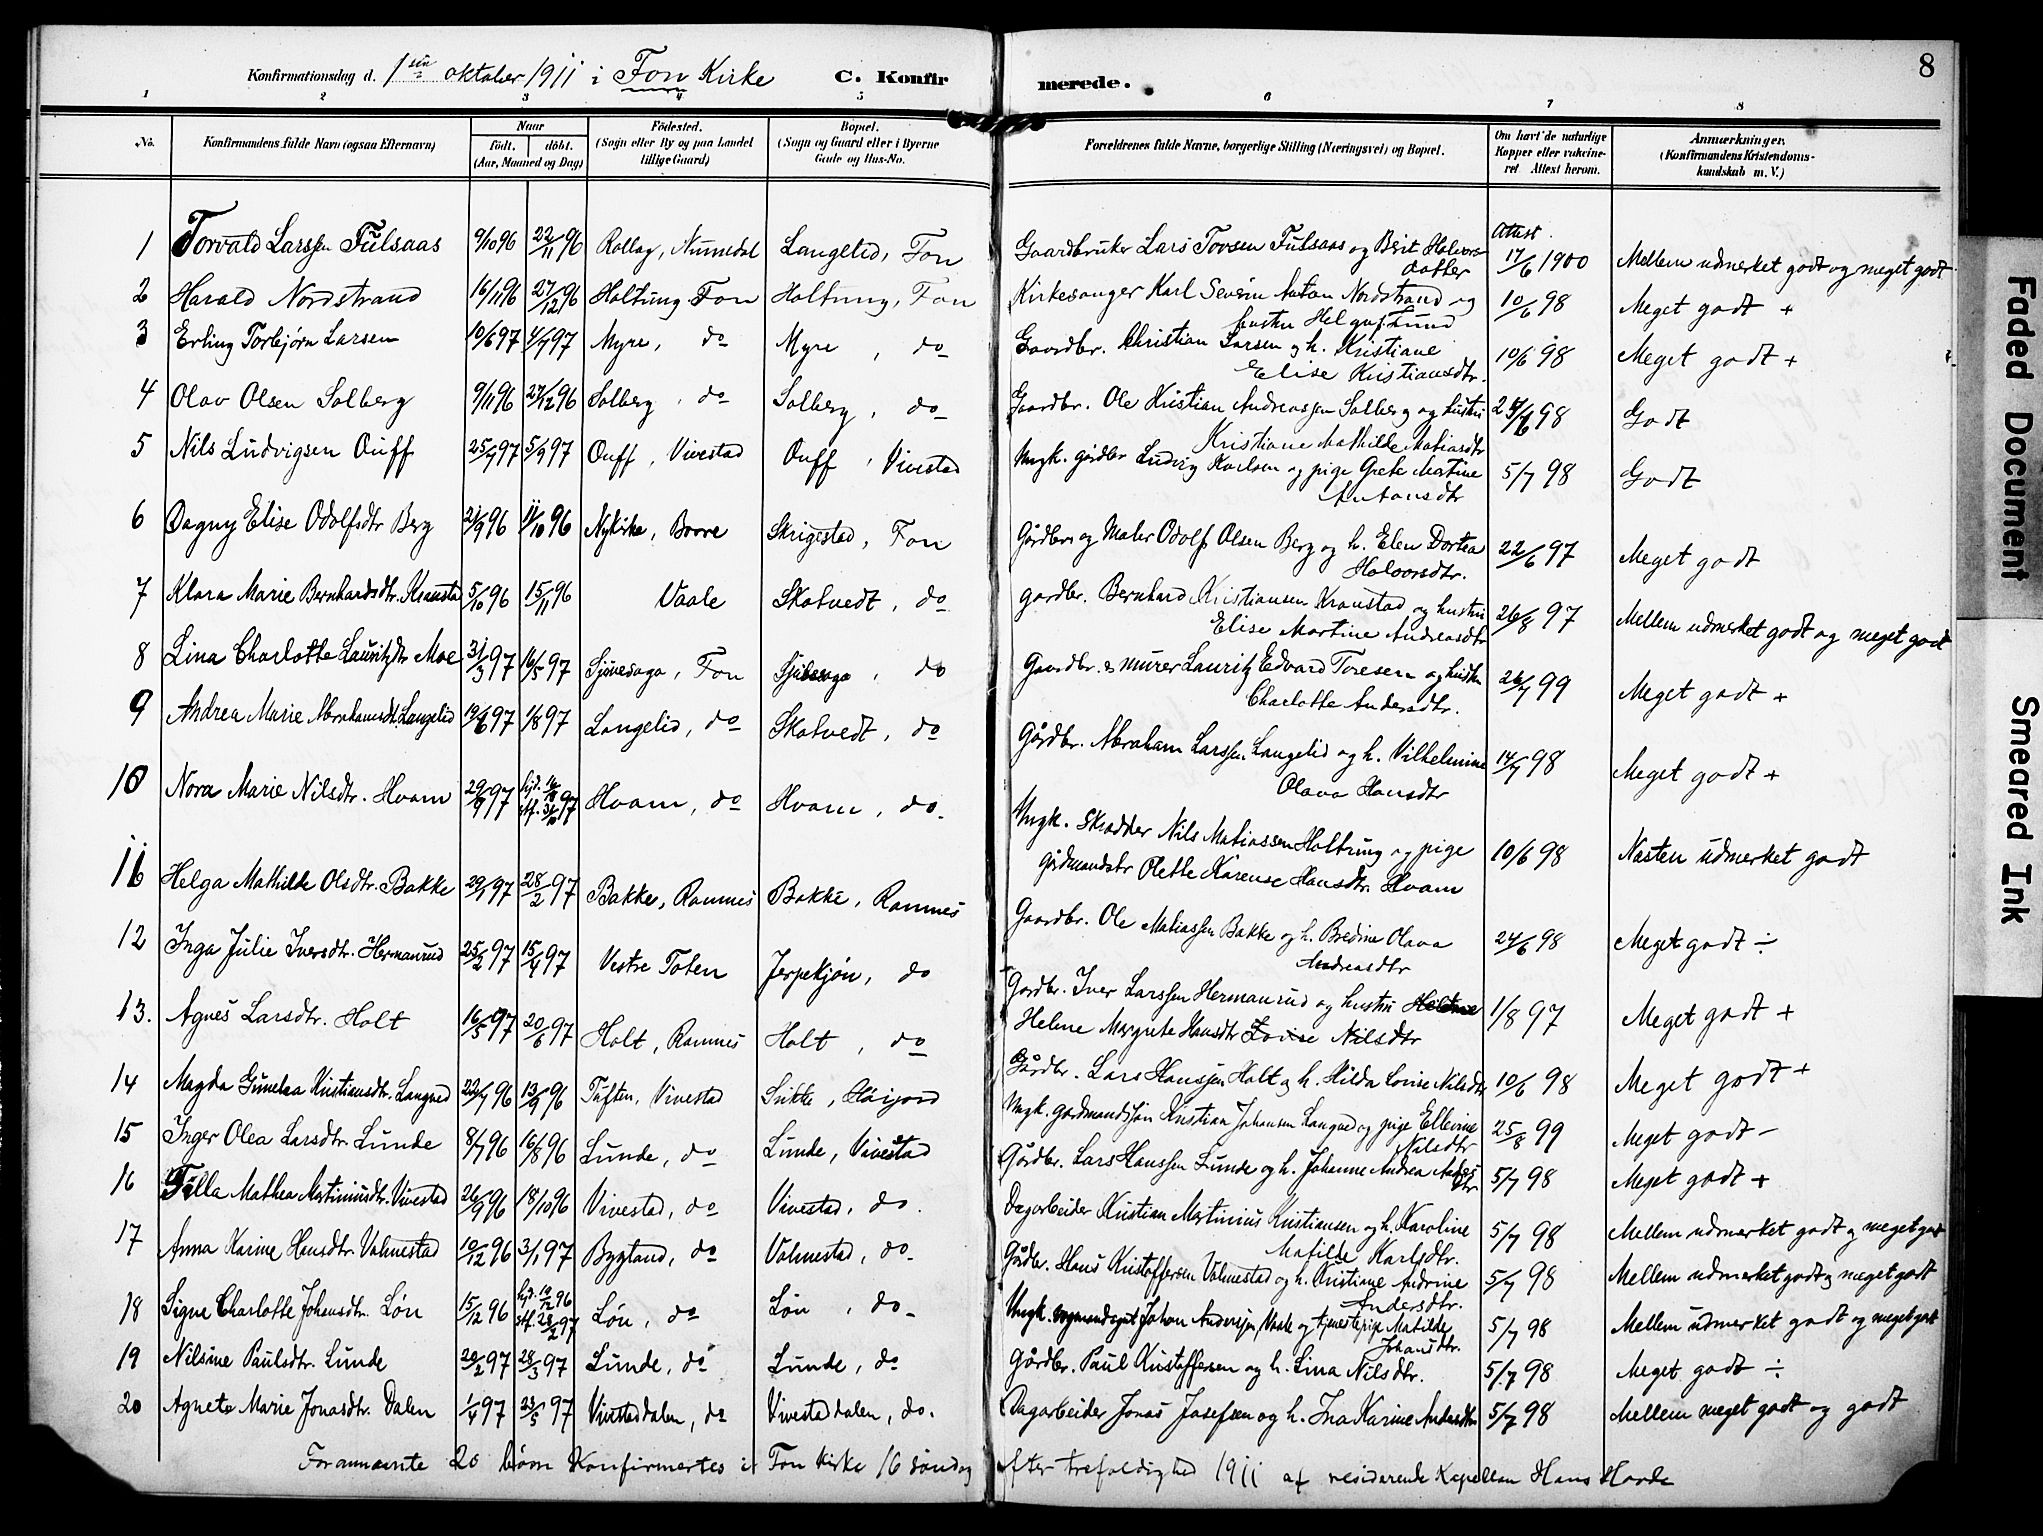 8
Konfirmationsdag d. 1ste oktober 1911 i Fon Kirke C. Konfirmerede.
1 2 3 4 5 6 7 8
No. Konfirmandens fulde Navn (ogsaa Efternavn) Naar Födested. Bopæl. Forældrenes fulde Navne, borgerlige Stilling (Næringsvei) og Bopæl. Om havt de naturlige Anmærkninger.
födt. döbt. (Sogn eller By og paa Landet (Sogn og Gaard eller i Byerne Kopper eller vakcine- (Konfirmandens Kristendoms-
(Aar, Maaned og Dag) tillige Gaard) Gade og Hus-No. ret Attest herom. kundskab m. V.)
Attest.
1 Torvald Larssen Fulsaas 9/10 96 22/11 96 Rollag, Numedal Langelid, Fon Gaardbruker Lars Tovsen Fulsaas og Berit Halvors- 17/6 1900 Mellem udmerket godt og meget godt
datter
2 Harald Nordstrand 16/11 96 27/12 96 Holtung Fon Holtung, Fon Kirkesanger Karl Severin Anton Nordstrand og 10/6 98 Meget godt +
hustru Helga f. Lund
3 Erling Torbjørn Larsen 10/6 97 4/7 97 Myre, do Myre, do Gaardbr. Christian Larsen og h. Kristiane 10/6 98 Meget godt +
Elise Kristiansdtr.
4 Olav Olsen Solberg 9/11 96 27/12 96 Solberg, do Solberg, do Gaardbr. Ole Kristian Andreassen Solberg og hustru 98 Godt
Kristiane Mathilde Matiasdtr
5 Nils Ludvigsen Ouff 25/7 97 5/9 97 Ouff, Vivestad Ouff, Vivestad Ungk. gårdbr Ludvig Karlsen og pige Grete Martine 5/7 98 Godt
Antonsdtr
6 Dagny Elise Odolfsdtr Berg 21/9 96 11/10 96 Nykirke, Borre Skrigestad, Fon Gårdbr og Maler Odolf Olsen Berg og h. Elen Dortea 22/6 97 Meget godt
Halvorsdtr.
7 Klara Marie Bernhardsdtr. Kransta 5/10 96 15/11 96 Vaale Skotvedt, do gardbr. Bernhard Kristiansen Kranstad og hustru 26/8 97 Mellem udmerket godt og meget godt
Elise Martine Andreasdtr
8 Lina Charlotte Lauritzdtr Moe 31/3 97 16/5 97 Sjuesaga, Fon do Gaardbr. & murer Lauritz Edvard Toresen og hustru 26/7 99 Meget godt +
Charlotte Andersdtr.
9 Andrea Marie Abrahamsdt. Langelid 19/6 97 1/8 97 Langelid, do Skotvedt, do Gårdbr. Abraham Larssen Langelid og h. Vilhelmine 14/7 98 Meget godt +
Olava Hansdtr
10 Nora Marie Nilsdtr. Hvam 29/9 97 hjd. stf. 31/10 97 Hvam, do Hvam, do. Ungk. Skrædder Nils Matiassen Holtung og pige 10/6 98 Næsten udmerket godt
gårdmandsdtr Olette Karense Hansdtr. Hvam
11 Helga Mathilde Olsdtr. Bakke 29/1 97 28/2 97 Bakke, Ramnes Bakke, Ramnes Gaardbr. Ole Matiassen Bakke og h. Bredine Olava 24/6 98 Meget godt ÷
Andreasdtr
12 Inga Julie Iversdtr. Hermanrud 25/2 97 15/4 97 Vestre Toten Jerpekjøn, do Gardbr. Iver Larssen Hermanrud og hustru 1/8 97 Meget godt +
Helene Margrete Hansdtr Lovise Nilsdtr
13. Agnes Larsdtr. Holt 16/5 97 20/6 97 Holt, Ramnes Holt, do Gårdbr. Lars Hanssen Holt og h. Hilda Lovise Nilsdtr 10/6 98 Meget godt +
14 Magda Gunelaa Kristiansdtr. Langved 22/7 96 13/9 96 Tuften, Vivestad Sukke, Høijord Ungk. gardmandssøn Kristian Johansen Langved og pige Ellevine 25/8 99 Meget godt –
Nilsdtr
15 Inger Olea Larsdtr. Lunde 8/7 96 16/8 96 Lunde, do Lunde, Vivestad Gårdbr. Lars Hanssen Lunde og h. Johanne Andrea Anders 5/7 98 Meget godt +
dtr
16 Tilla Mathea Martiniusdtr. Vivestad 26/9 96 18/10 96 Vivestad, do Vivestad, do. Dagarbeider Kristian Martinius Kristiansen og h. Karoline 5/7 98 Mellem udmerket godt og meget godt
Matilde Karlsdtr.
17 Anna Karine Hansdtr. Valmestad 10/12 96 3/1 97 Bygtand, do Valmestad, do. Gårdbr. Hans Kristoffersen Valmestad og h. Kristiane Andrine 5/7 98 Mellem udmerket godt og meget godt
Andersdtr.
18 Signe Charlotte Johansdtr. Løn 15/12 96 hjd. 19/12 96 stf. 28/2 97 Løn, do Løn, do. Ungk. Johan Anderssen og tjenestepige Matilde 5/7 98 Mellem udmerket godt og meget godt
Johansdtr.
19 Nilsine Paulsdtr. Lunde 20/2 97 28/3 97 Lunde, do Lunde, do Gårdbr. Paul Kristoffersen og h. Lina Nilsdtr. 5/7 98 Meget godt ÷
20 Agnete Marie Jonasdtr. Dalen 1/4 97 23/5 97 Vivestaddalen, do Vivestaddalen, do. Dagarbeider Jonas Josefsen og h. Ina Karine Andersdtr 5/7 98 Mellem meget godt og godt
Forannævnte 20 børn Konfirmertes i Fon Kirke 16 søndag efter trefoldighed 1911 af residerende Kapellan Hans Horde
Faded Document
Smeared Ink